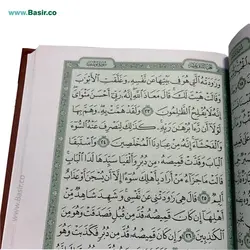 www.Basir.co
وَرَٰوَدَتْهُ الَّتِي هُوَ فِي بَيْتِهَا عَن نَّفْسِهِ وَغَلَّقَتِ الْأَبْوَابَ
وَقَالَتْ هَيْتَ لَكَ قَالَ مَعَاذَ اللَّهِ إِنَّهُ رَبِّي أَحْسَنَ مَثْوَايَ
إِنَّهُ لَا يُفْلِحُ الظَّالِمُونَ ٢٣ وَلَقَدْ هَمَّتْ بِهِ وَهَمَّ بِهَا
لَوْلَا أَن رَّءَا بُرْهَٰنَ رَبِّهِ كَذَٰلِكَ لِنَصْرِفَ عَنْهُ السُّوءَ
وَالْفَحْشَاءَ إِنَّهُ مِنْ عِبَادِنَا الْمُخْلَصِينَ ٢٤ وَاسْتَبَقَا
الْبَابَ وَقَدَّتْ قَمِيصَهُ مِن دُبُرٍ وَأَلْفَيَا سَيِّدَهَا لَدَا الْبَابِ
قَالَتْ مَا جَزَاءُ مَنْ أَرَادَ بِأَهْلِكَ سُوءًا إِلَّا أَن يُسْجَنَ أَوْ عَذَابٌ
أَلِيمٌ ٢٥ قَالَ هِيَ رَٰوَدَتْنِي عَن نَّفْسِي وَشَهِدَ شَاهِدٌ مِّنْ
أَهْلِهَا إِن كَانَ قَمِيصُهُ قُدَّ مِن قُبُلٍ فَصَدَقَتْ وَهُوَ مِنَ
الْكَاذِبِينَ ٢٦ وَإِن كَانَ قَمِيصُهُ قُدَّ مِن دُبُرٍ فَكَذَبَتْ وَهُوَ
www.Basir.co